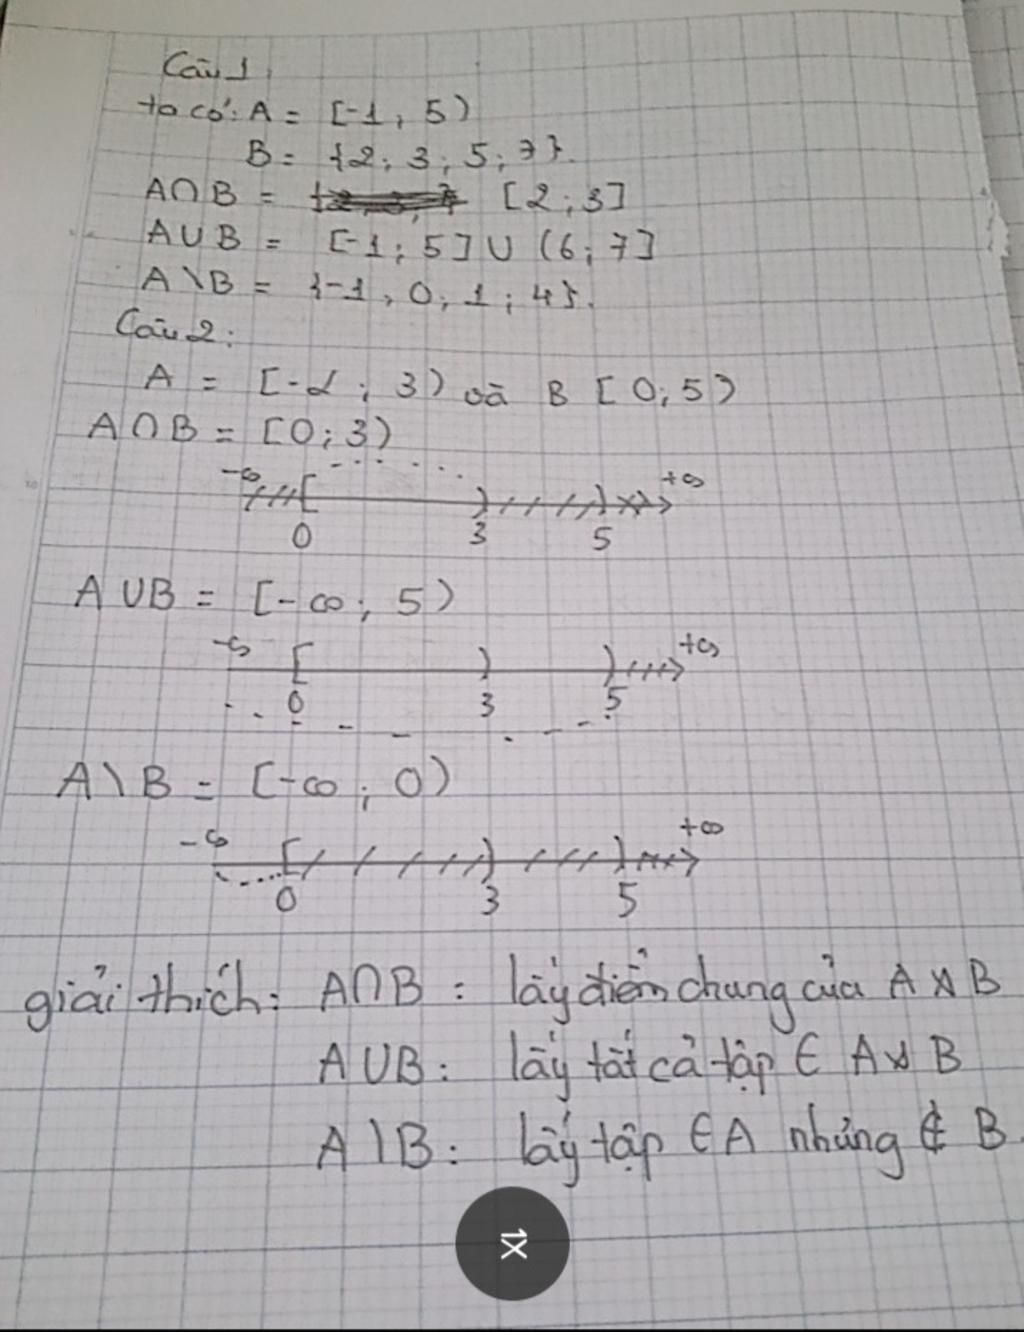 Câu 1
ta có: A = [-1, 5)
B = {2; 3; 5; 7}.
A∩B = [2; 3]
A∪B = [-1; 5] ∪ (6; 7]
A\B = {-1, 0; 1; 4}.
Câu 2:
A = [-∞; 3) và B [0; 5)
A∩B = [0; 3)
-∞ +∞
0 3 5
A∪B = [-∞; 5)
-∞ +∞
0 3 5
A\B = [-∞; 0)
-∞ +∞
0 3 5
giải thích: A∩B : lấy điểm chung của A và B
A∪B: lấy tất cả tập ∈ A và B
A\B: lấy tập ∈ A nhưng ∉ B.
1X